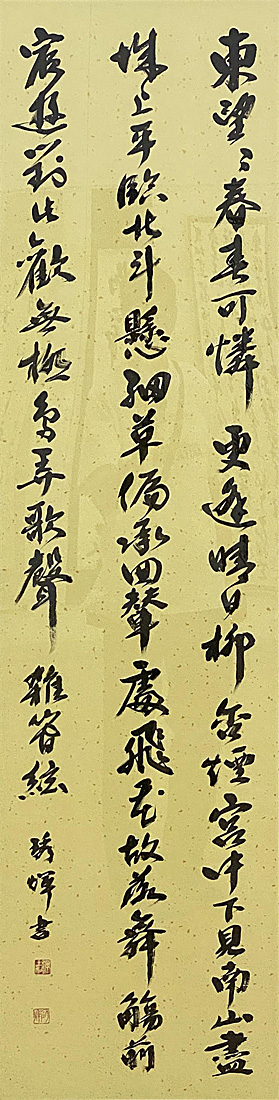 東望〻春春可憐更逢晴日柳含煙宮中下見南山盡
城上平臨北斗懸細草偏承回輦處飛花故落舞觴前
宸遊對此歡無極鳥弄歌聲雜管絃 書